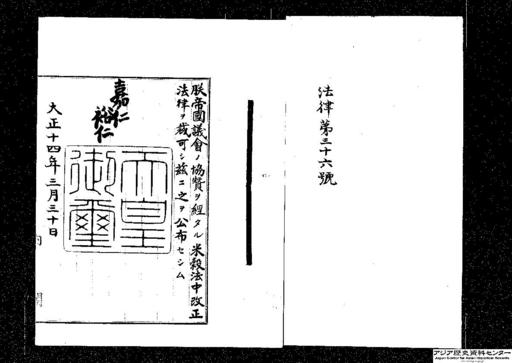 法律第三十六號
朕帝國議會ノ協贊ヲ經タル米穀法中改正
法律ヲ裁可シ玆ニ之ヲ公布セシム
嘉仁
裕仁
天皇
御璽
大正十四年三月三十日
内閣
アジア歴史資料センター
Japan Center for Asian Historical Records